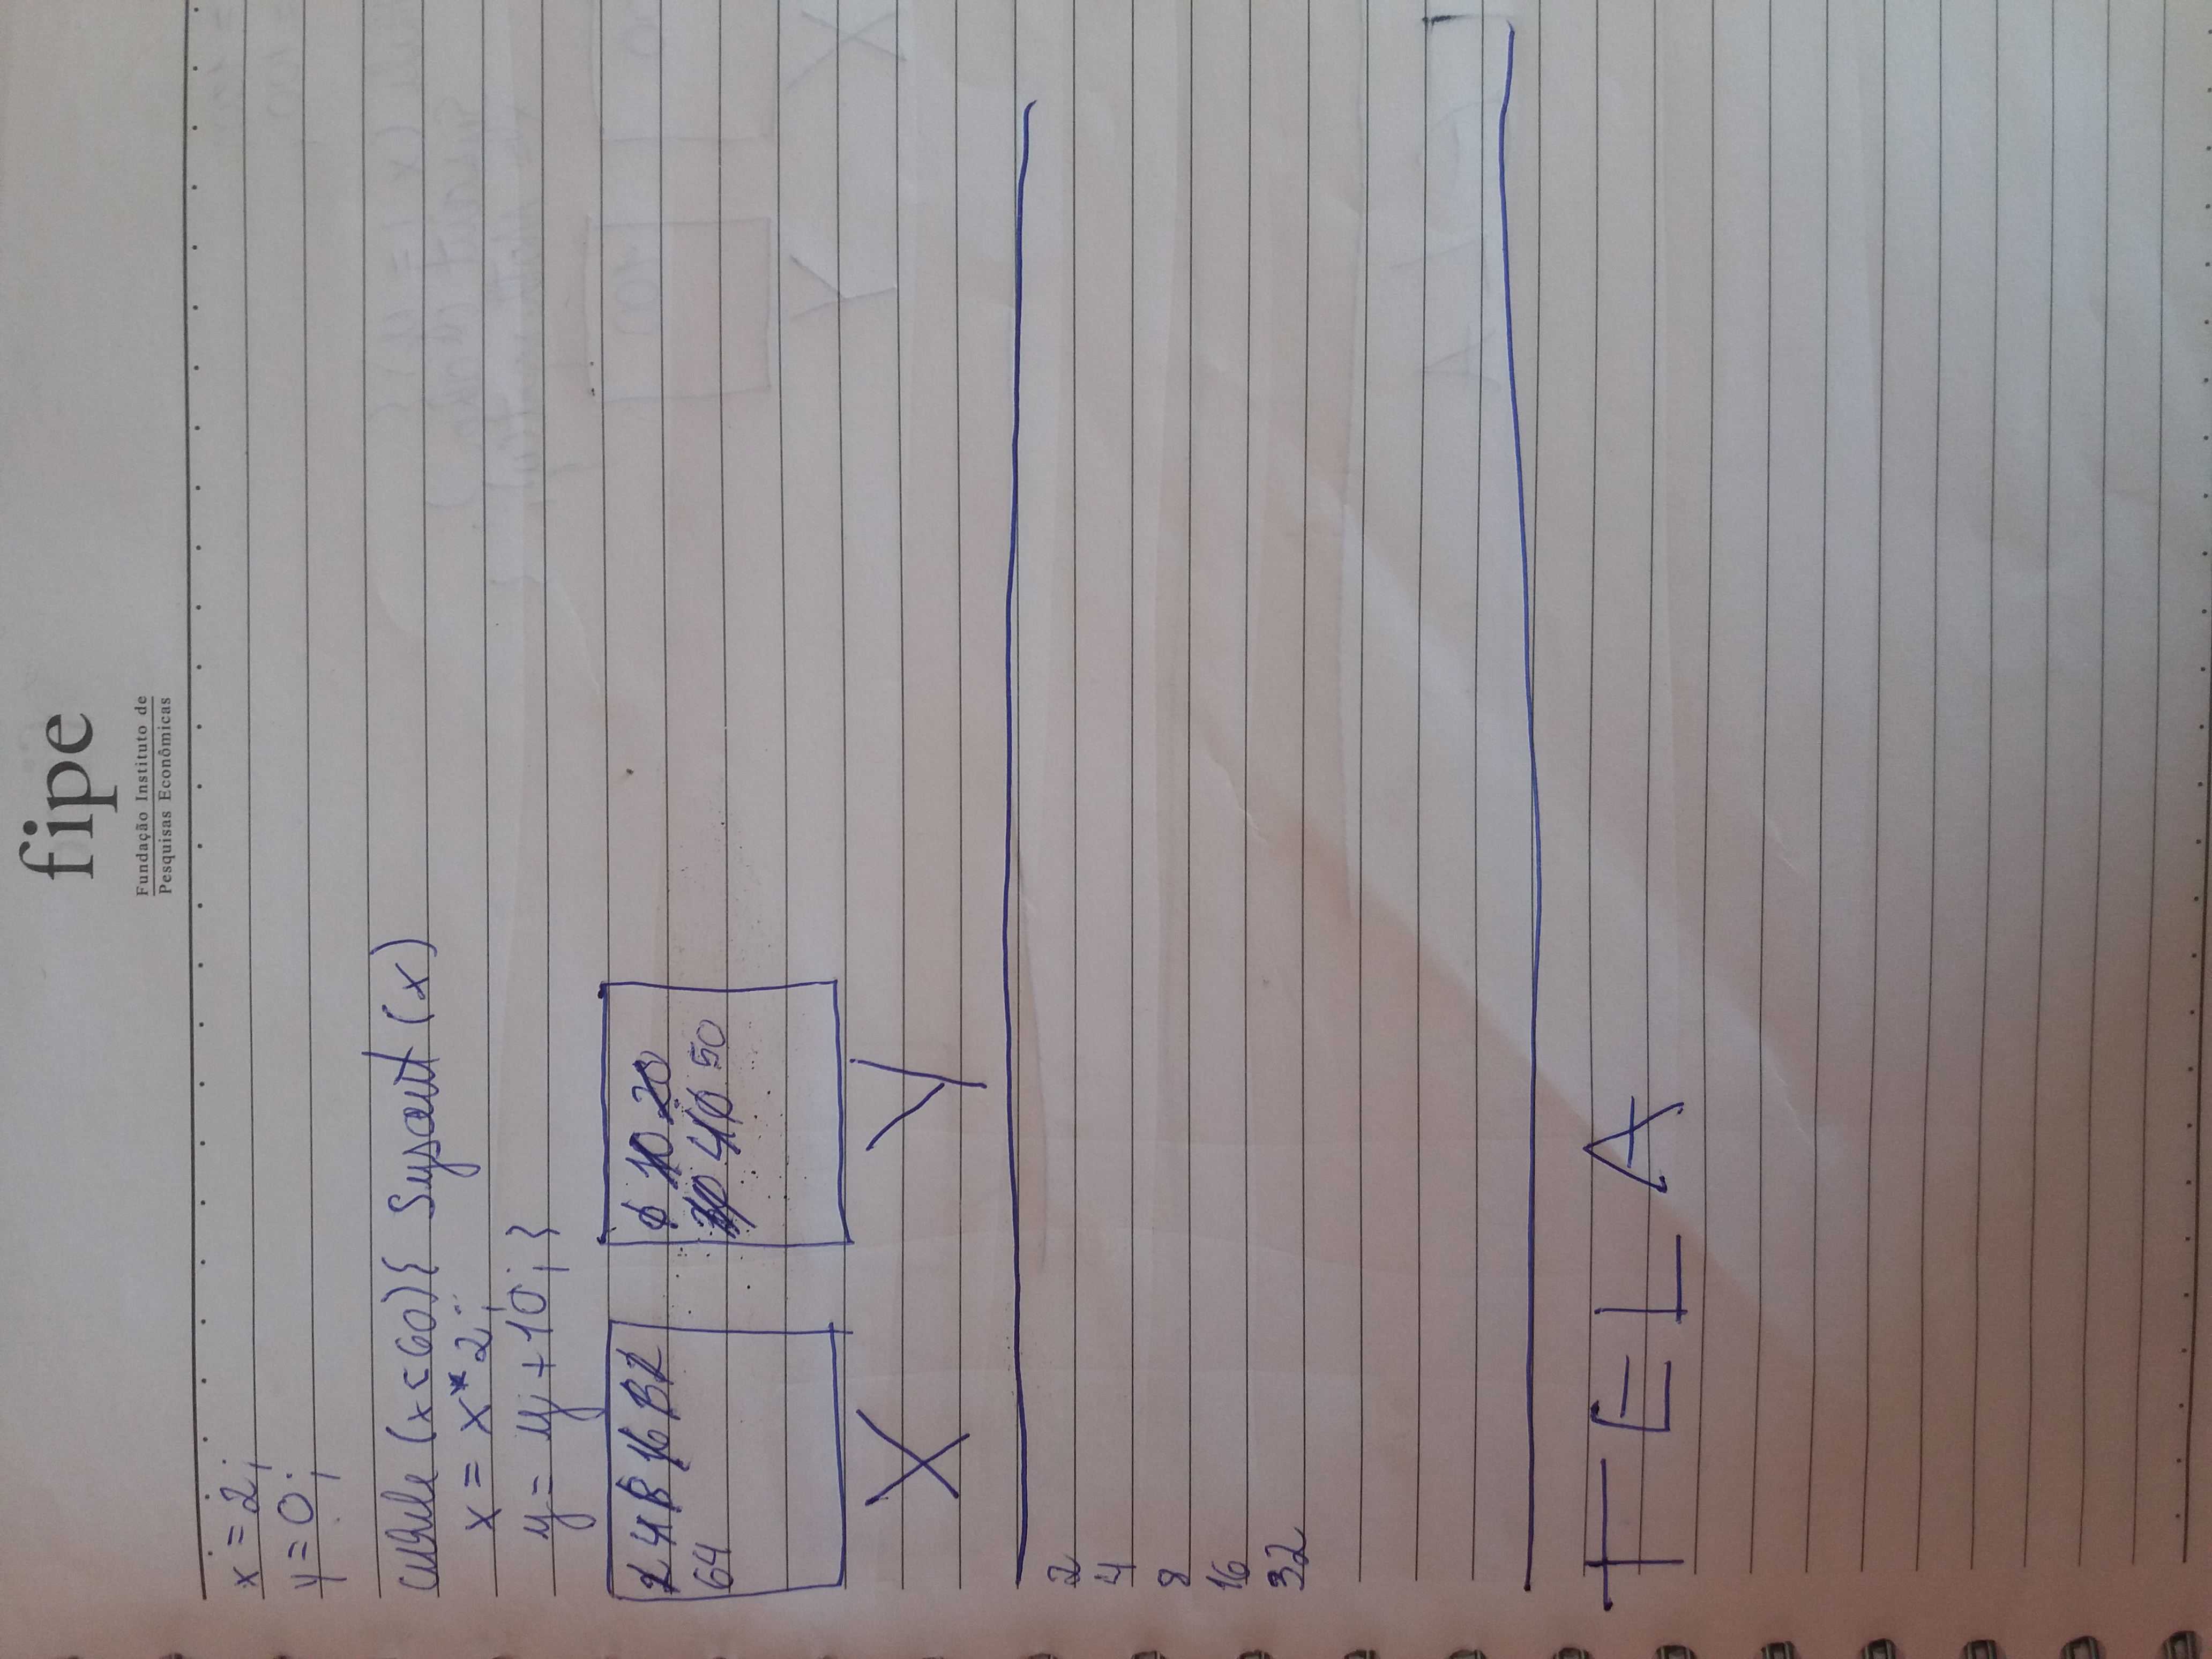 fipe
Fundação Instituto de
Pesquisas Econômicas
x = 2;
y = 0;
while (x < 60) { Sysout (x)
x = x * 2;
y = y + 10; }
2 4 8 16 32
64
0 10 20
30 40 50
X Y
2
4
8
16
32
TELA